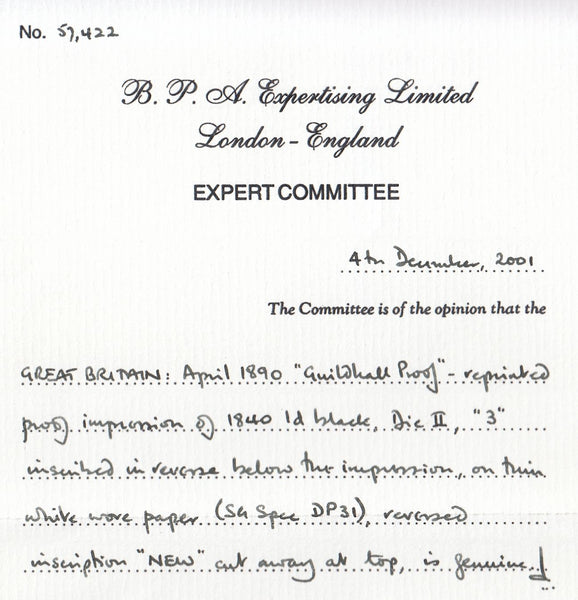 No. 57,422
B. P. A. Expertising Limited
London - England
EXPERT COMMITTEE
4th December, 2001
The Committee is of the opinion that the
GREAT BRITAIN: April 1890 "Guildhall Proof" - reprinted
proof impression of 1840 1d black, Die II, "3"
inscribed in reverse below the impression, on thin
white wove paper (SG Spec DP31), reversed
inscription "NEW" cut away at top, is genuine.